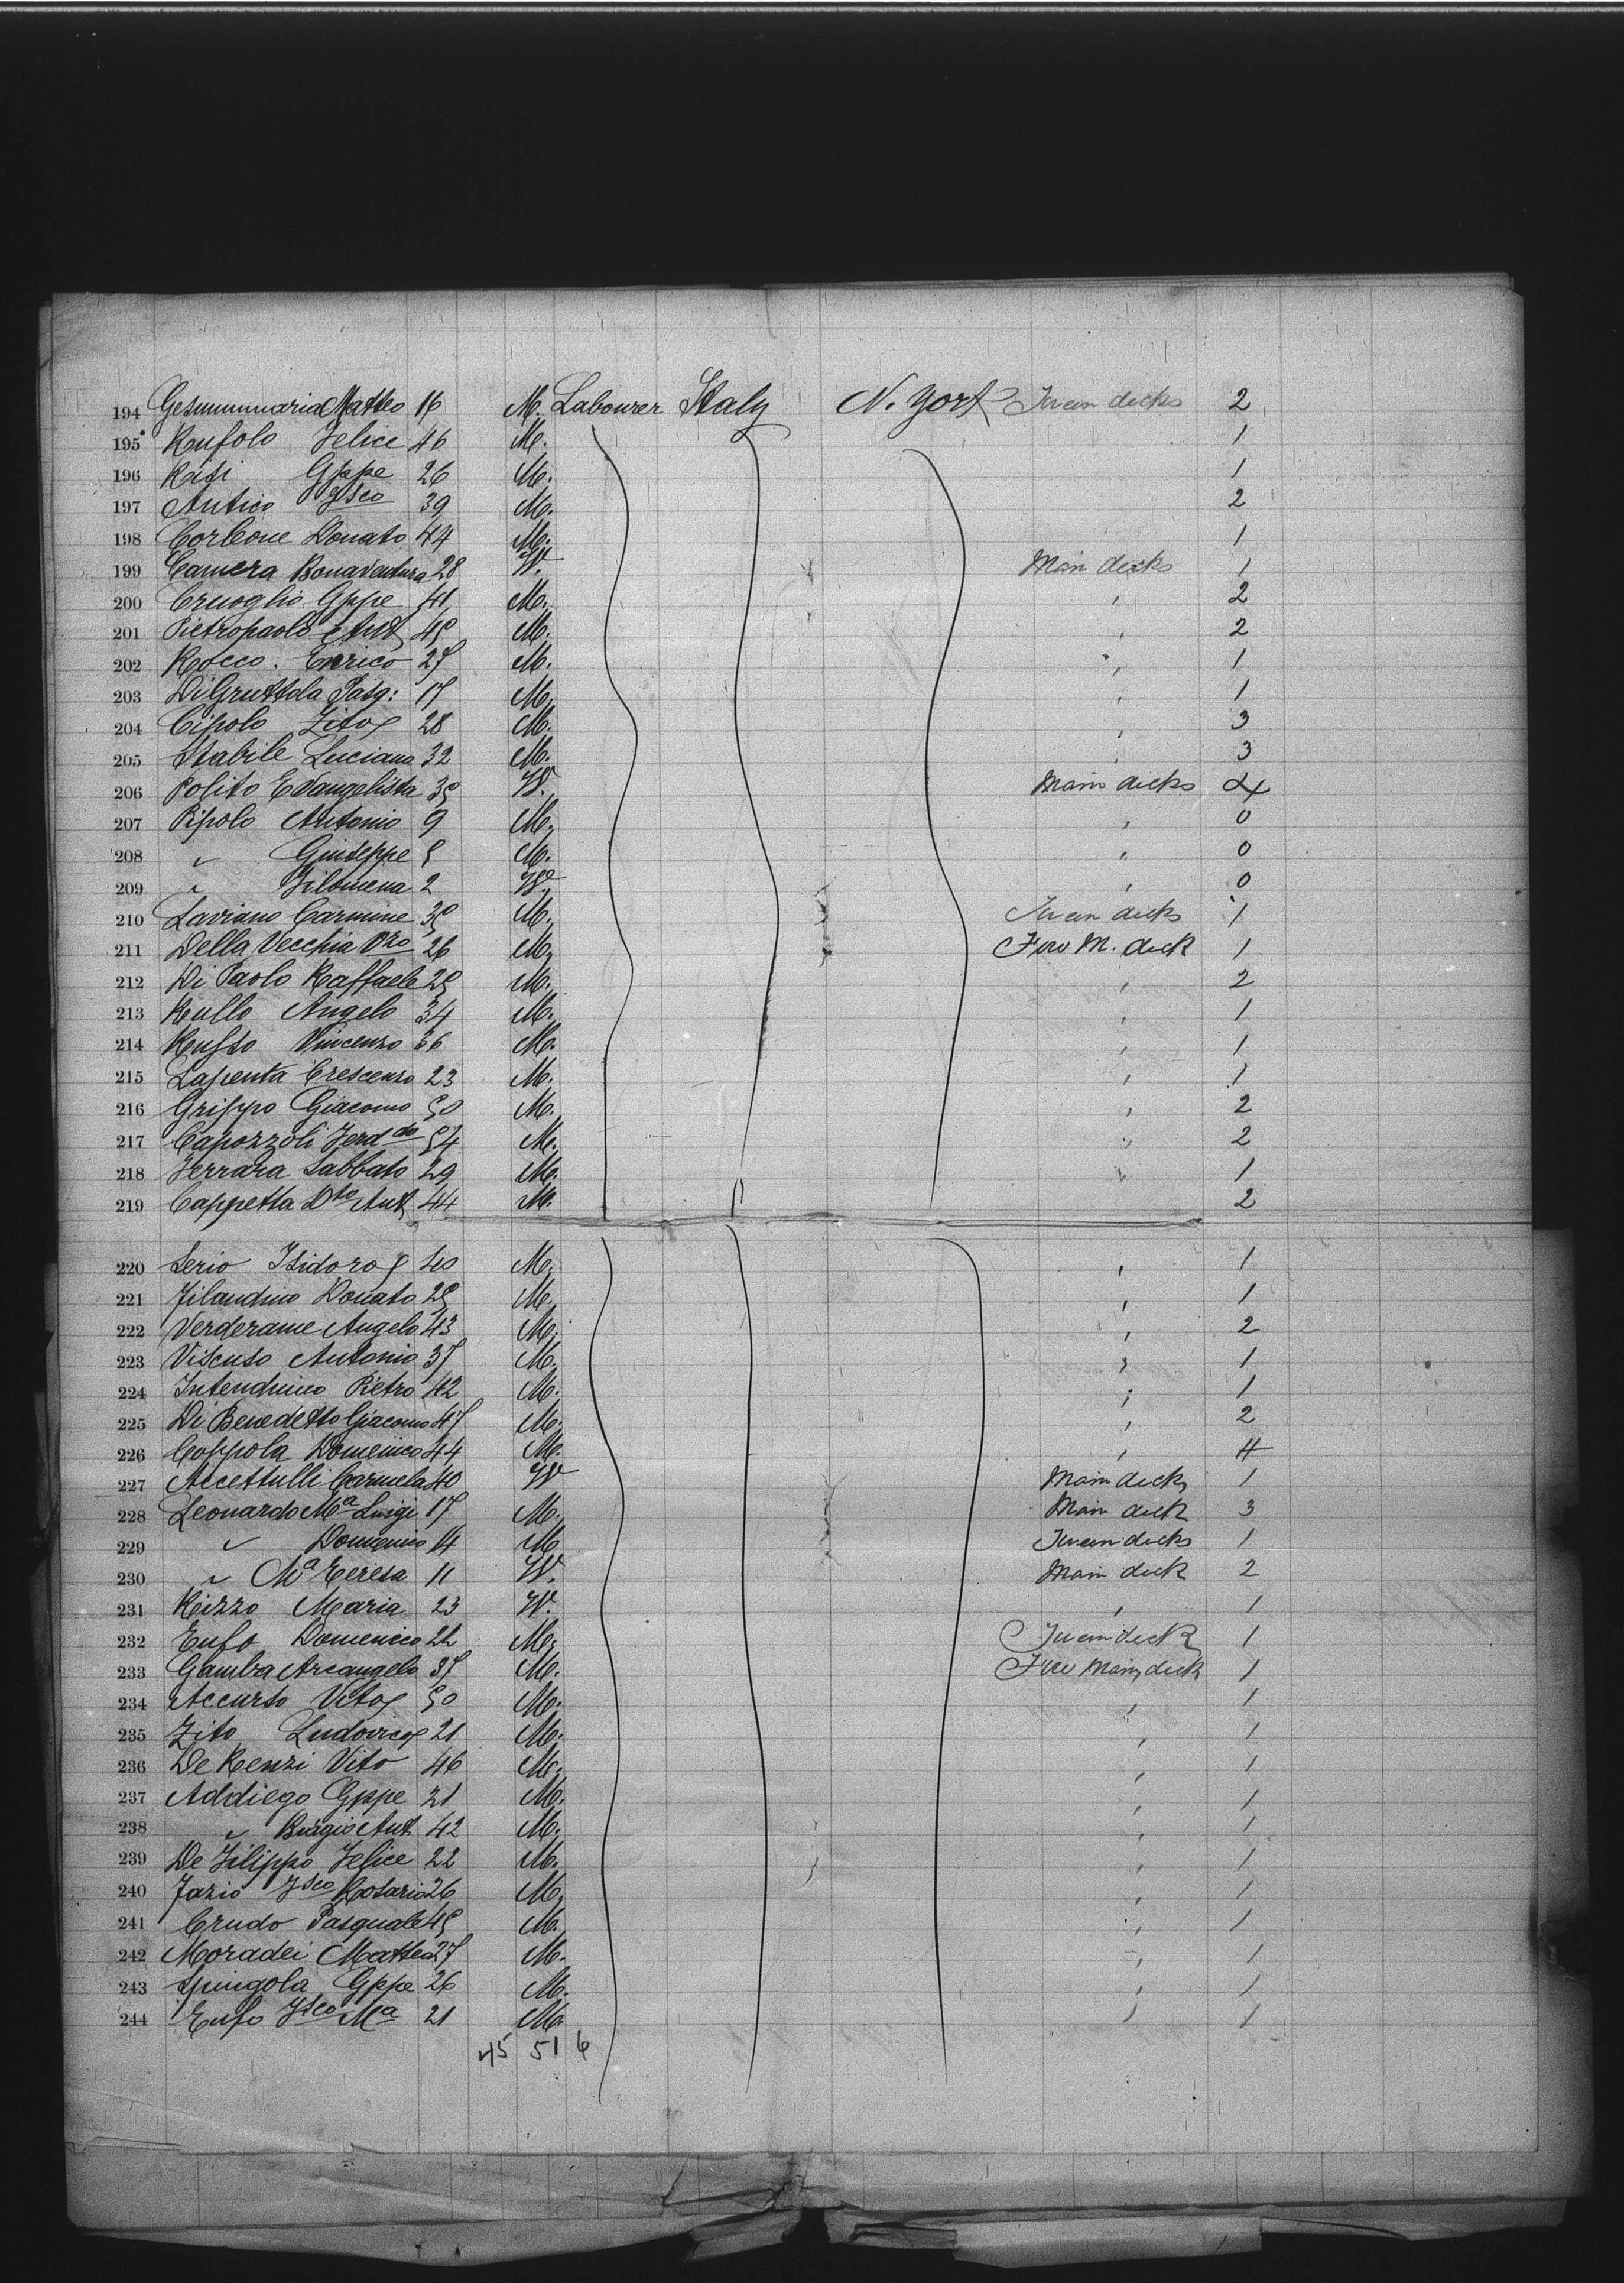 194 Gesummaria Matteo 16 M. Labourer Italy N. York Tween decks 2
195 Rufolo Felice 46 M. 1
196 Rasi Gppe 26 M. 1
197 Antico Fsco 39 M. 2
198 Corleone Donato 44 M. 1
199 Camera Bonaventura 28 W. Main decks 1
200 Cruoglio Gppe 41 M. " 2
201 Pietropaolo Ant 45 M. " 2
202 Rocco. Enrico 27 M. " 1
203 Di Gruttola Pasq: 17 M. " 1
204 Cipolo Zito 28 M. " 3
205 Stabile Luciano 32 M. " 3
206 Polito Evangelista 35 W. Main decks 4
207 Pipolo Antonio 9 M. " 0
208 " Giuseppe 5 M. " 0
209 " Filomena 2 W. " 0
210 Laviano Carmine 35 M. Tween decks 1
211 Della Vecchia Vzo 26 M. Fore M. deck 1
212 Di Paolo Raffaele 25 M. " 2
213 Rullo Angelo 34 M. " 1
214 Russo Vincenzo 36 M. " 1
215 Lapenta Crescenzo 23 M. " 1
216 Grippo Giacomo 50 M. " 2
217 Capozzoli Ferd do 54 M. " 2
218 Ferrara Sabbato 29 M. " 1
219 Cappetta Dto Ant 44 M. 2
220 Serio Isidoro 40 M. " 1
221 Filandino Donato 25 M. " 1
222 Verderame Angelo 43 M. " 2
223 Viscuso Antonio 37 M. " 1
224 Pietro 42 M. " 1
225 Di Benedetto Giacomo 47 M. " 2
226 Coppola Domenico 44 M. " 4
227 Accettulli Carmela 40 W Main deck 1
228 Leonardo Ma Luigi 17 M. Main deck 3
229 " Domenico 14 M Tween decks 1
230 " Ma Teresa 11 W. Main deck 2
231 Rizzo Maria 23 W. " 1
232 Eufo Domenico 22 M. Tween deck 1
233 Gamba Arcangelo 37 M. Fore Main deck 1
234 Accurso Vito 50 M. " 1
235 Zito Ludovico 21 M. " 1
236 De Renzi Vito 46 M. " 1
237 Addiego Gppe 21 M. " 1
238 " Biagio Ant. 42 M. " 1
239 De Filippo Felice 22 M. " 1
240 Fazio Fsco Rosario 26 M. " 1
241 Crudo Pasquale 45 M. " 1
242 Moradei Matteo 27 M. " 1
243 Spingola Gppe 26 M. " 1
244 Eufo Fsco Ma 21 M. " 1
45 51 6